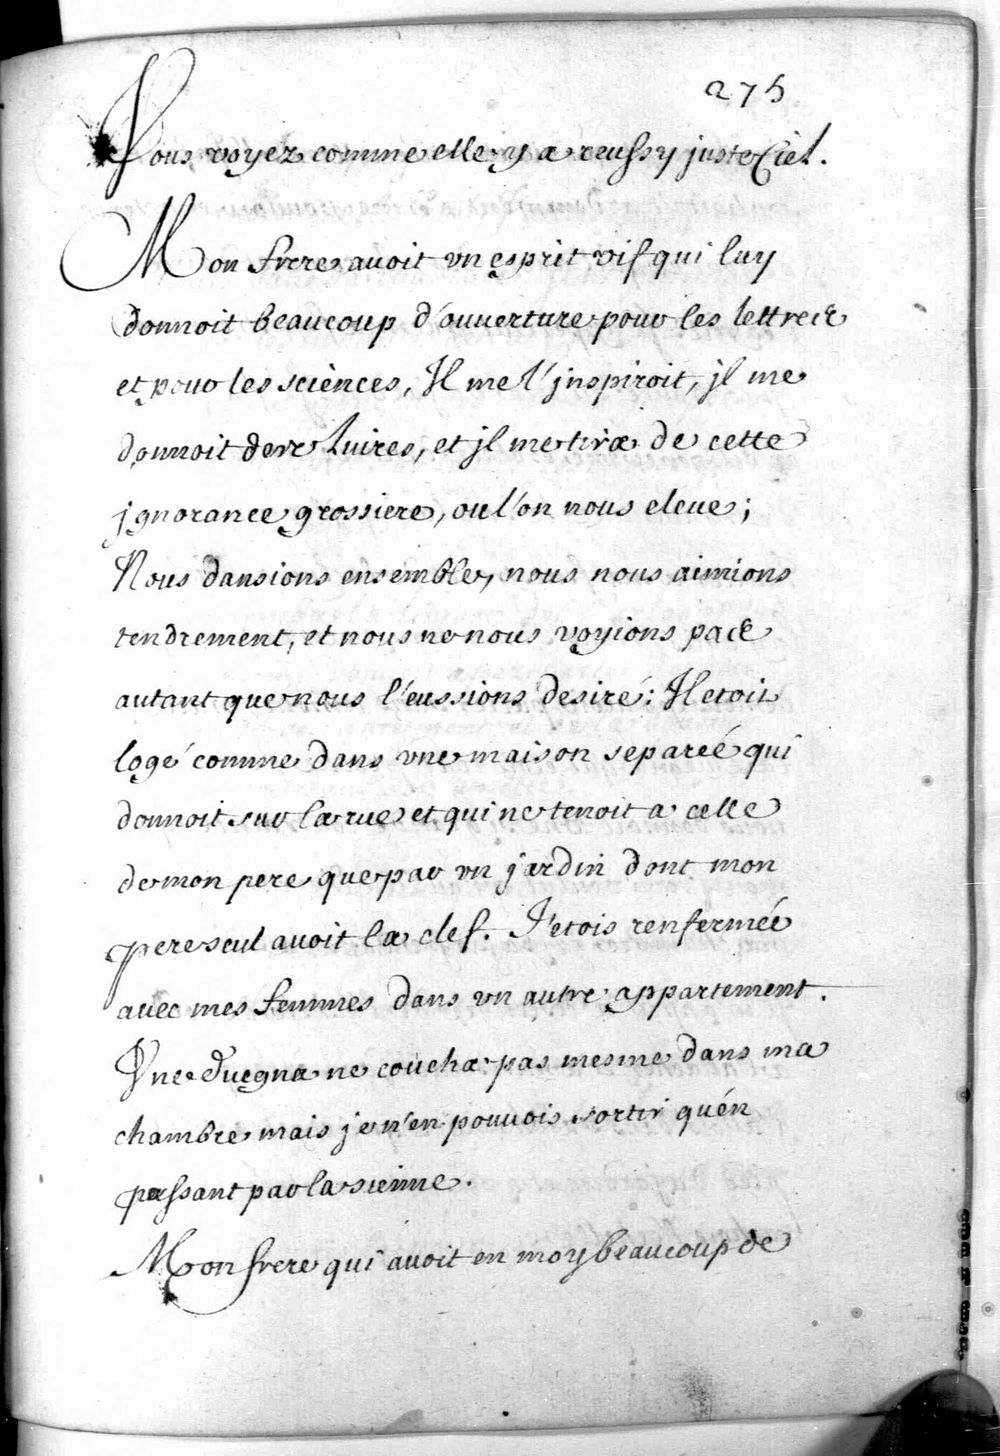 275
Vous voyez comme elle y a reussy juste Ciel.
Mon frere auoit vn esprit vif qui luy
donnoit beaucoup d'ouuerture pour les lettres
et pour les sciences, Il me l'jnspiroit, jl me
donnoit des Liures, et jl me tira de cette
jgnorance grossiere, ou l'on nous eleue;
Nous dansions ensemble, nous nous aimions
tendrement, et nous ne nous voyions pas
autant que nous l'eussions desiré: Il etoit
logé comme dans vne maison separeé qui
donnoit sur la rue et qui ne tenoit a celle
de mon pere que par vn jardin dont mon
pere seul auoit la clef. J'etois renfermée
auec mes femmes dans vn autre appartement.
Vne Duegna ne coucha pas mesme dans ma
chambre mais je n'en pouuois sortir qu'en
passant par la sienne.
Mon frere qui auoit en moy beaucoup de